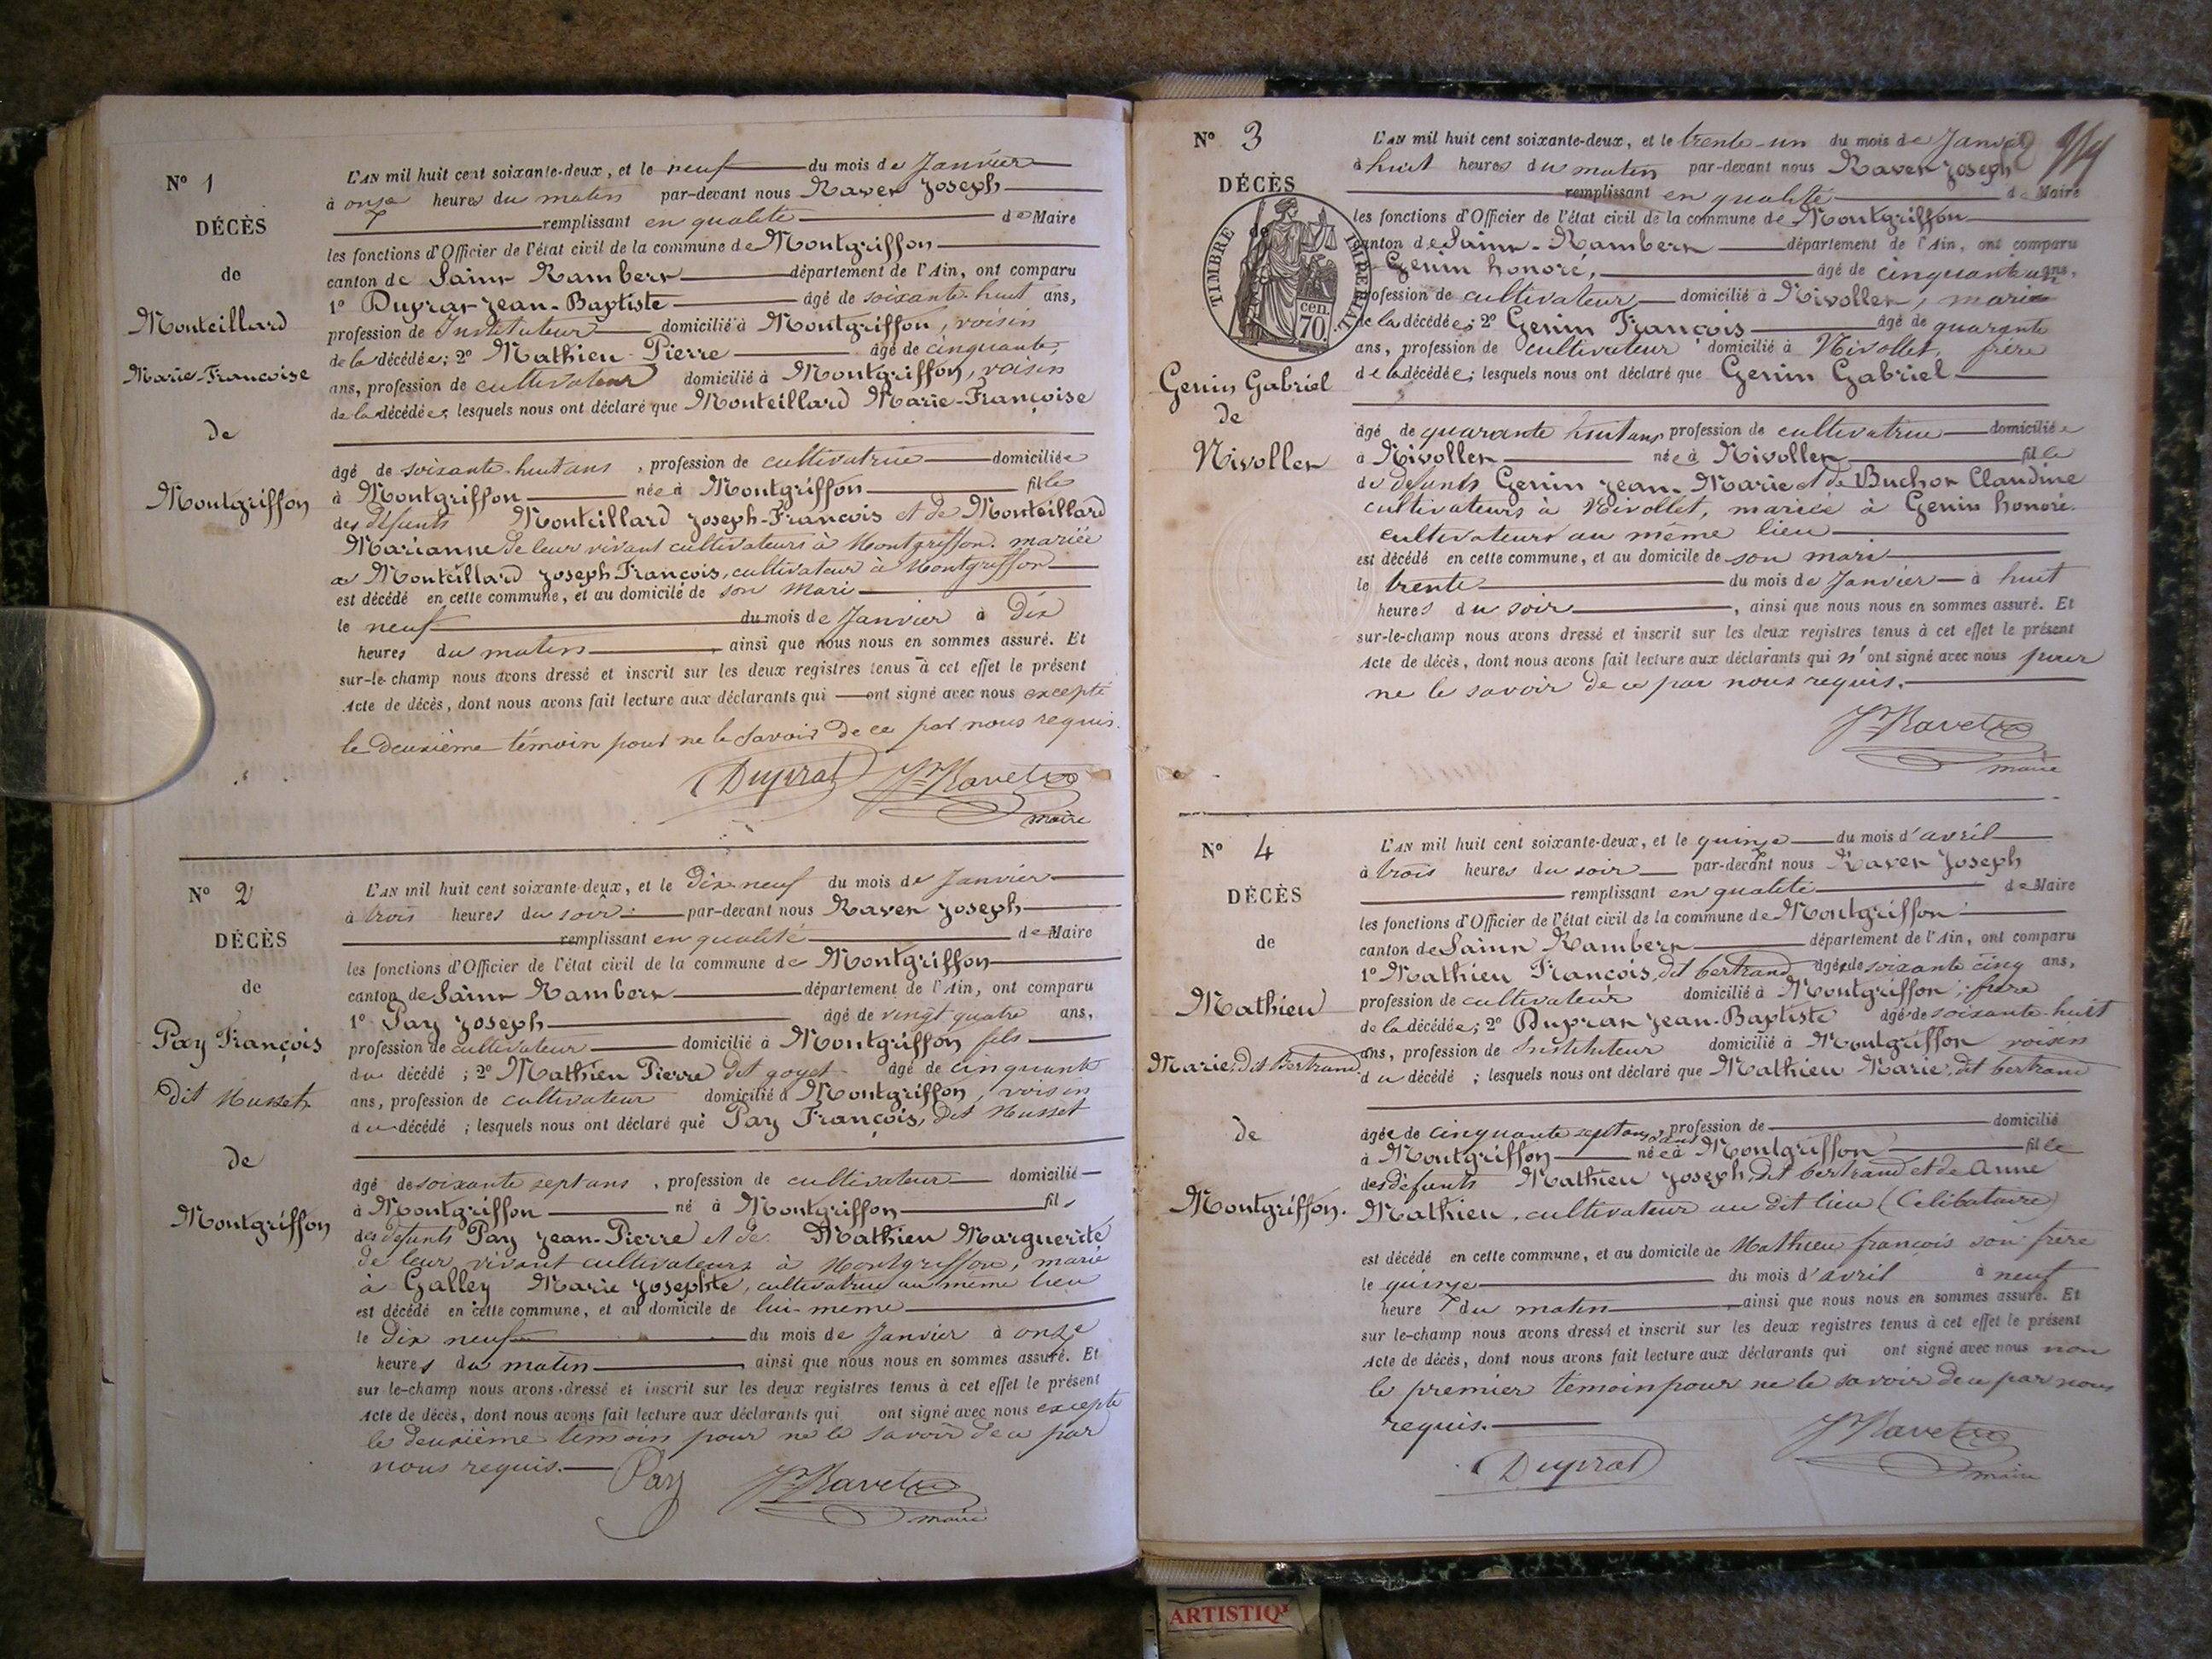 N° 1
DÉCÈS
de
Monteillard
Marie-Françoise
de
Montgriffon
L'AN mil huit cent soixante-deux, et le neuf du mois de Janvier
à onze heures du matin par-devant nous Ravet Joseph
remplissant en qualité de Maire
les fonctions d'Officier de l'état civil de la commune de Montgriffon
canton de Saint Rambert département de l'Ain, ont comparu
1° Duprat Jean-Baptiste âgé de soixante-huit ans,
profession de Instituteur domicilié à Montgriffon, voisin
de la décédée; 2° Mathieu Pierre âgé de cinquante,
ans, profession de cultivateur domicilié à Montgriffon, voisin
de la décédée, lesquels nous ont déclaré que Monteillard Marie-Françoise
âgé de soixante-huit ans, profession de cultivatrice domiciliée
à Montgriffon née à Montgriffon fille
des défunts Monteillard Joseph-François et de Monteillard
Marianne de leur vivant cultivateurs à Montgriffon. mariée
à Monteillard Joseph François, cultivateur à Montgriffon
est décédé en cette commune, et au domicile de son Mari
le neuf du mois de Janvier à Dix
heures du matin, ainsi que nous nous en sommes assuré. Et
sur-le-champ nous avons dressé et inscrit sur les deux registres tenus à cet effet le présent
Acte de décès, dont nous avons fait lecture aux déclarants qui ont signé avec nous excepté
le deuxième témoin pour ne le savoir de ce par nous requis.
Duprat Jh Ravet
maire
N° 2
DÉCÈS
de
Pay François
dit Musset
de
Montgriffon
L'AN mil huit cent soixante-deux, et le Dix neuf du mois de Janvier
à trois heures du soir par-devant nous Ravet Joseph
remplissant en qualité de Maire
les fonctions d'Officier de l'état civil de la commune de Montgriffon
canton de Saint Rambert département de l'Ain, ont comparu
1° Pay Joseph âgé de vingt quatre ans,
profession de cultivateur domicilié à Montgriffon fils
du décédé ; 2° Mathieu Pierre dit goyet âgé de cinquante
ans, profession de cultivateur domicilié à Montgriffon, voisin
du décédé ; lesquels nous ont déclaré que Pay François, dit Musset
âgé de soixante sept ans, profession de cultivateur domicilié
à Montgriffon né à Montgriffon fils
des défunts Pay Jean-Pierre et de Mathieu Marguerite
de leur vivant cultivateurs à Montgriffon, marié
à Galley Marie Josephte, cultivatrice au même lieu
est décédé en cette commune, et au domicile de lui-même
le Dix neuf du mois de Janvier à onze
heures du matin, ainsi que nous nous en sommes assuré. Et
sur-le-champ nous avons dressé et inscrit sur les deux registres tenus à cet effet le présent
Acte de décès, dont nous avons fait lecture aux déclarants qui ont signé avec nous excepté
le deuxième témoin pour ne le savoir de ce par
nous requis. Pay Jh Ravet
maire
N° 3
DÉCÈS
de
TIMBRE IMPERIAL
70 cen.
Genin Gabriel
de
Nivollet
L'AN mil huit cent soixante-deux, et le trente-un du mois de Janvier
à huit heures du matin par-devant nous Ravet Joseph
remplissant en qualité de Maire
les fonctions d'Officier de l'état civil de la commune de Montgriffon
canton de Saint-Rambert département de l'Ain, ont comparu
Genin honoré, âgé de cinquante ans,
profession de cultivateur domicilié à Nivollet, mari
de la décédée; 2° Genin François âgé de quarante
ans, profession de cultivateur domicilié à Nivollet, frère
de la décédée; lesquels nous ont déclaré que Genin Gabriel
âgé de quarante huit ans profession de cultivatrice domiciliée
à Nivollet née à Nivollet fille
de défunts Genin Jean-Marie et de Buchot Claudine
cultivateurs à Nivollet, mariée à Genin honoré.
cultivateurs au même lieu
est décédé en cette commune, et au domicile de son mari
le trente du mois de Janvier à huit
heures du soir, ainsi que nous nous en sommes assuré. Et
sur-le-champ nous avons dressé et inscrit sur les deux registres tenus à cet effet le présent
Acte de décès, dont nous avons fait lecture aux déclarants qui n'ont signé avec nous pour
ne le savoir de ce par nous requis.
Jh Ravet
maire
N° 4
DÉCÈS
de
Mathieu
Marie, dit Bertrand
de
Montgriffon.
L'AN mil huit cent soixante-deux, et le quinze du mois d'avril
à trois heures du soir par-devant nous Ravet Joseph
remplissant en qualité de Maire
les fonctions d'Officier de l'état civil de la commune de Montgriffon
canton de Saint Rambert département de l'Ain, ont comparu
1° Mathieu François, dit bertrand âgé de soixante cinq ans,
profession de cultivateur domicilié à Montgriffon, frère
de la décédée; 2° Duprat Jean-Baptiste âgé de soixante-huit
ans, profession de Instituteur domicilié à Montgriffon voisin
du décédé ; lesquels nous ont déclaré que Mathieu Marie, dit bertrand
âgée de cinquante sept ans, profession de domicilié
à Montgriffon née à Montgriffon fille
des défunts Mathieu Joseph, dit bertrand et de Anne
Mathieu, cultivateur au dit lieu (Célibataire)
est décédé en cette commune, et au domicile de Mathieu françois son frère
le quinze du mois d'avril à neuf
heure du matin, ainsi que nous nous en sommes assuré. Et
sur le-champ nous avons dressé et inscrit sur les deux registres tenus à cet effet le présent
Acte de décès, dont nous avons fait lecture aux déclarants qui ont signé avec nous non
le premier témoin pour ne le savoir de ce par nous
requis.
Duprat Jh Ravet
maire
ARTISTIQ